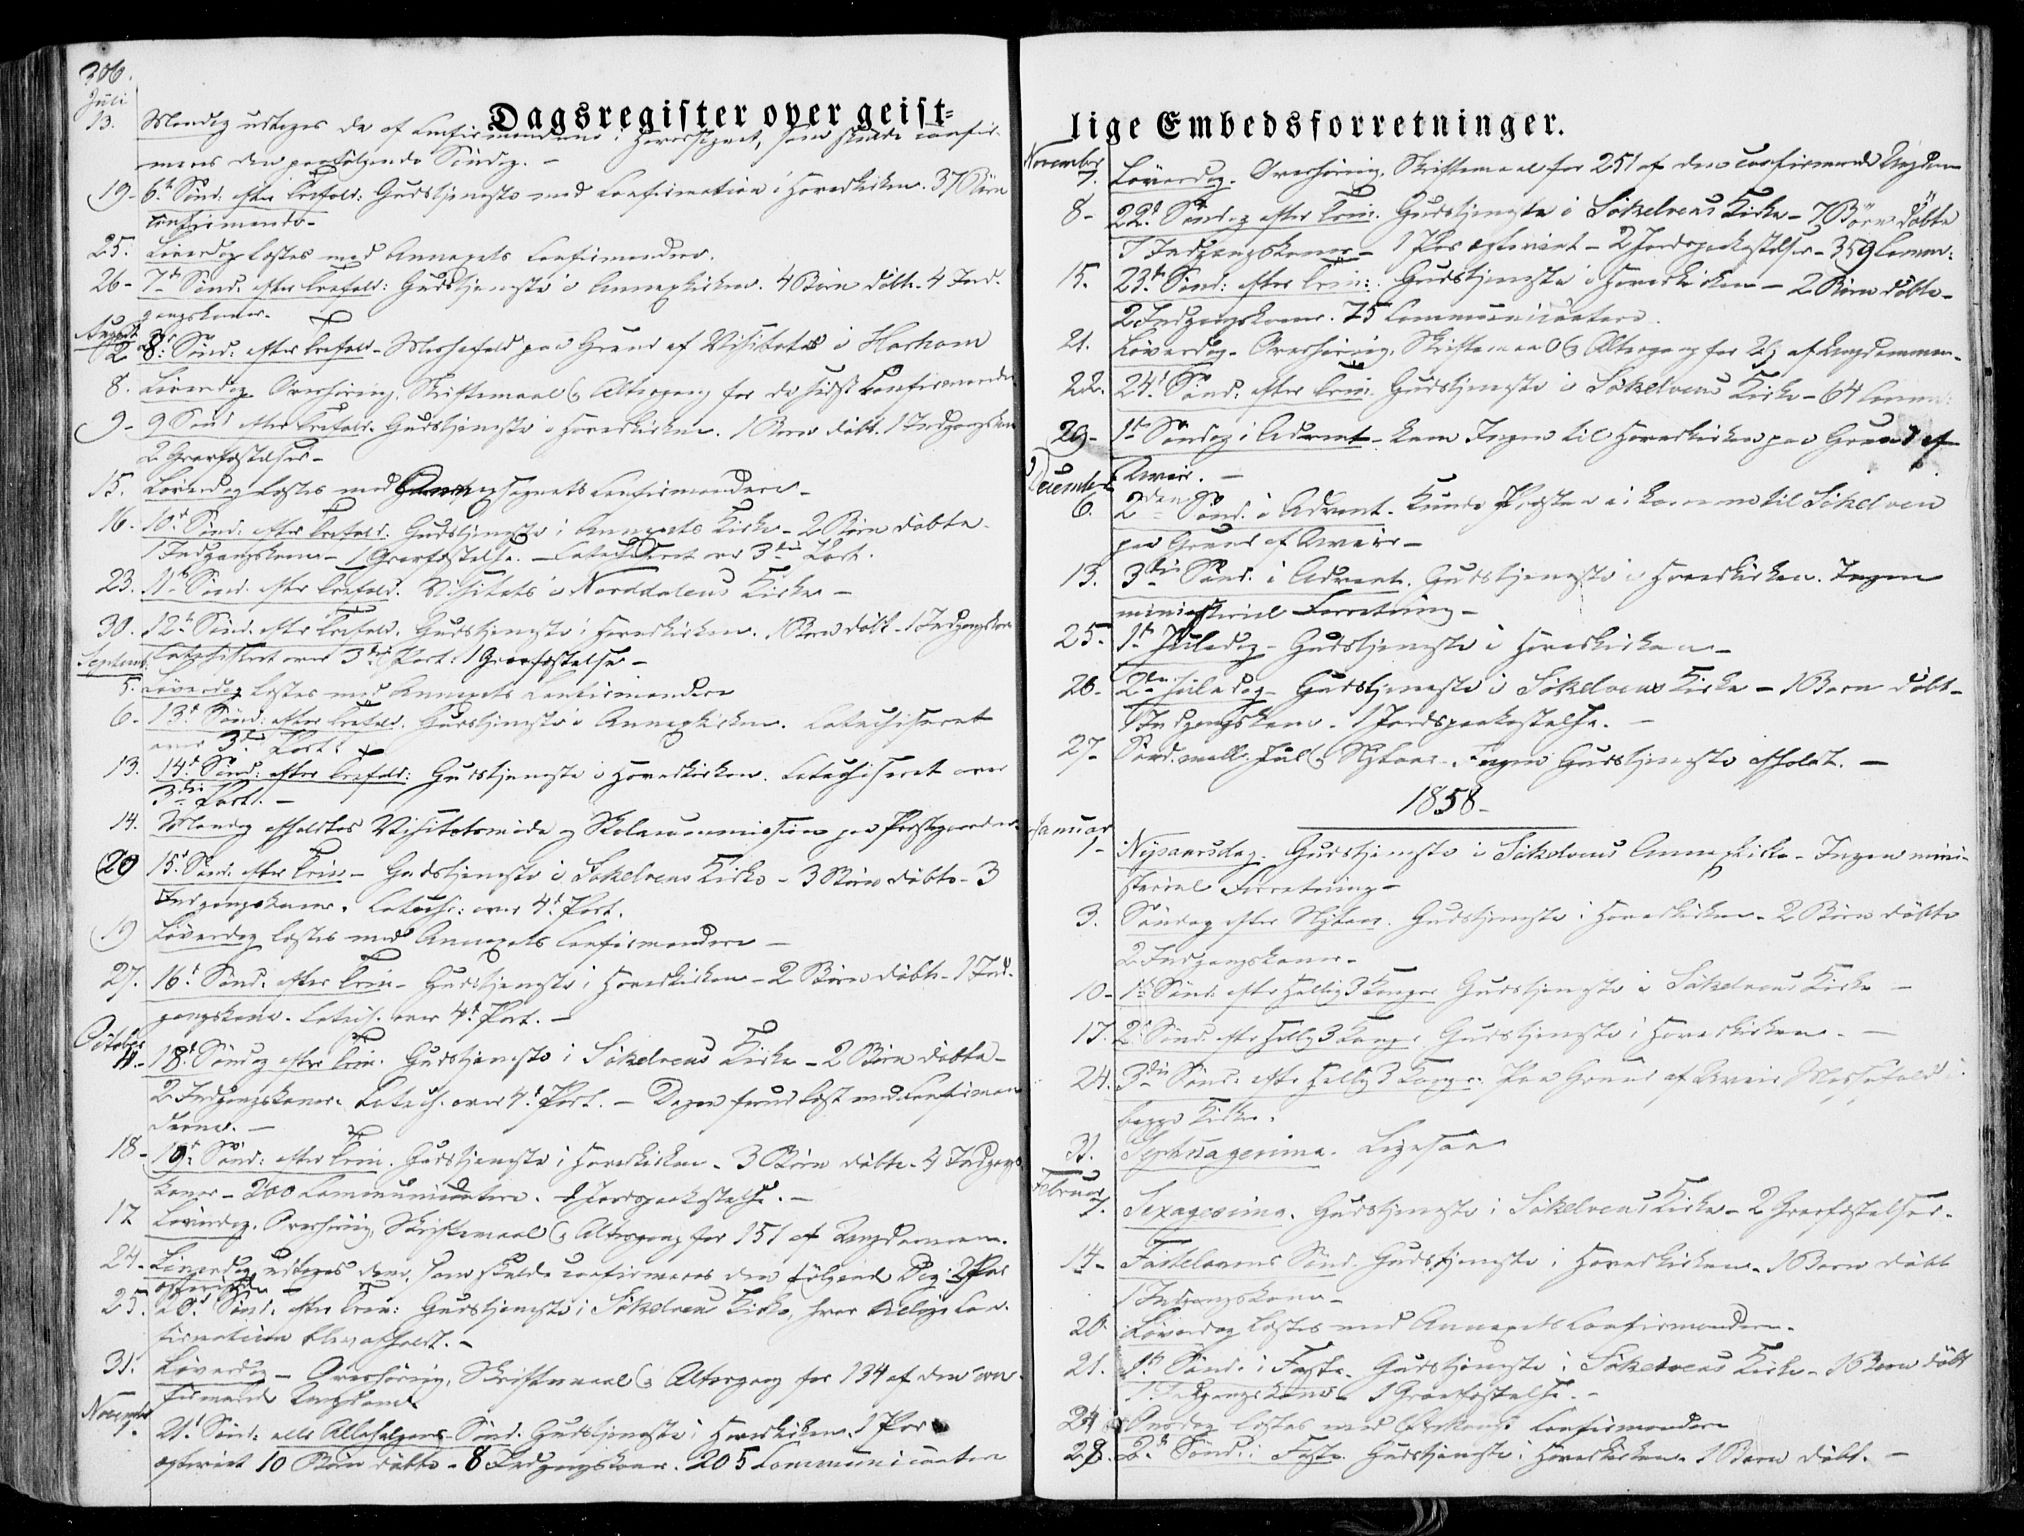 306.
Dagsregister over geist=
Juli
13. Mandag udtoges de af Confirmanderne i Hovedsognet, som skulde confir-
meres den paafølgende Søndag. -
19- 6te Sønd: efter Trefold: Gudstjeneste med Confirmation i Hovedkirken. 37 Børn
confirmerede-
25. Løverdag læstes med Annexets Confirmander.
26- 7de Sønd: efter Trefold: Gudstjeneste i Annexkirken. 4 Børn døbte. 4 Ind-
gangskoner.
August
2 8de Sønd: efter Trefold- Messefald paa Grund af Visitats i
8. Løverdag Overhøring, Skriftemaal & Altergang for de sidst Confirmerede
9- 9 Sønd efter Trefold- Gudstjeneste i Hovedkirken. 1 Barn døbt. 1 Indgangskone
2 Gravfæstelser-
15. Løverdag læstes med Confirmandere-
16- 10de Sønd: efter Trefold. Gudstjeneste i Annexets Kirke- 2 Børn døbte-
1 Indgangskone- 1 Gravfæstelse. - Catechiseret over 3die Part.
23. 11te Sønd: efter Trefold. Visitats i Norddalens Kirke-
30. 12te Sønd. efter Trefold. Gudstjeneste i Hovedkirken. 1 Barn døbt- 1 Indgangskone
Septemb. Catechiseret over 3die Part: 1 Gravfæstelse-
5. Løverdag læstes med Annexets Confirmandere
6- 13de Sønd: efter Trefold. Gudstjeneste i Annexkirken. Catechiseret
over 3die Part:
13. 14de Sønd: efter Trefold: Gudstjeneste i Hovedkirken. Catechiseret over
3die Part. -
14. Mandag afholdtes Visitatsmøde og Skolecommission paa Præstegaarden-
20 15de Sønd: efter Trin- Gudstjeneste i Søkelvens Kirke- 3 Børn døbte- 3
Indgangskoner. Catechi: over 4de Part.
19 Løverdag læstes med Annexets Confirmandere-
27. 16de Sønd: efter Trin- Gudstjeneste i Hovedkirken- 2 Børn døbte- 1 Ind-
gangskone. Catech. over 4de Part. -
October
11- 18de Søndag efter Trin. Gudstjeneste i Søkelvens Kirke- 2 Børn døbte-
2 Indgangskoner. Catech. over 4de Part. - Dagen forud læst med Confirman-
derne. -
18- 19de Sønd: efter Trin. Gudstjeneste i Hovedkirken- 3 Børn døbte- 4 Indgangs-
koner- 200 Communicantere. 1 Jordspaakastelse. -
17 Løverdag. Overhøring, Skriftemaal & Altergang for 151 af Ungdommen.
24- Løverdag udtoges dem, som skulde confirmeres den følgende Dag: 2 Par
25. 20de Sønd. efter Trin: Gudstjeneste i Søkelvens Kirke, hvor tillige Con-
firmation blev afholdt. -
31. Løverdag- Overhøring, Skriftemaal & Altergang for 134 af den con-
firmerede Ungdom.
November
1. 21de Sønd: alle Allehelgens-Sønd: Gudstjeneste i Hovedkirken. 1 Par
ægteviet 10 Børn døbte- 8 Indgangskoner. 205 Communicanter
lige Embedsforretninger.
November
7. Løverdag. Overhøring, Skriftemaal for 251 af den confirmerede Ungdom
8- 22de Søndag efter Trin. Gudstjeneste i Søkelvens Kirke- 7 Børn døbte
7 Indgangskoner- 1 Par ægteviet- 2 Jordspaakastelser- 359 Comm:
15. 23de Sønd: efter Trin:. Gudstjeneste i Hovedkirken- 2 Børn døbte-
2 Indgangskoner. 75 Communicantere.
21. Løverdag. Overhøring, Skriftemaal & Altergang for 29 af Ungdommen-
22. 24de Sønd: efter Trin. Gudstjeneste i Søkelvens Kirke- 64 Comm:
29- 1ste Søndag i Advent- kom Ingen til Hovedkirken paa Grund af
December Uveir. -
6. 2den Sønd. i Advent. Kunde Præsten ei komme til Søkelven
paa Grund af Uveir-
13. 3die Sønd. i Advent. Gudstjeneste i Hovedkirken. Ingen
ministeriel Forretning-
25. 1ste Juledag- Gudstjeneste i Hovedkirken-
26- 2den Juledag- Gudstjeneste i Søkelvens Kirke- 1 Barn døbt-
1 Indgangskone. 1 Jordspaakastelse. -
27- Sønd. mell: Jul & Nytaar- Ingen Gudstjeneste afholdt. -
1858-
Januar
1- Nytaarsdag. Gudstjeneste i Søkelvens Annexkirke- Ingen mini-
steriel Forretning-
3. Søndag efter Nytaar. Gudstjeneste i Hovedkirken- 2 Børn døbte
2 Indgangskoner-
10- 1ste Sønd: efter Hellig 3 Konger Gudstjeneste i Søkelvens Kirke -
17. 2den Sønd: efter Hellig 3 Konger Gudstjeneste i Hovedkirken- -
24. 3die Sønd: efter Hellig 3 Konger. Paa Grund af Uveir Messefald i
begge Kirker.
31. Septuagesima. Ligesaa
Februar
7. Sexagesima. Gudstjeneste i Søkelvens Kirke- 2 Gravfæstelser.
14- Fastelavens Sønd. Gudstjeneste i Hovedkirken- 1 Barn døbt
1 Indgangskone-
20. Løverdag læstes med Annexets Confirmandere-
21. 1ste Sønd: i Faste. Gudstjeneste i Søkelvens Kirke- 1 Barn døbt
1 Indgangskone- 1 Gravfæstelse. -
24 Onsdag læstes med Confirmandere
28. 2den Sønd: i Faste. Gudstjeneste i Hovedkirken. 1 Barn døbt. -